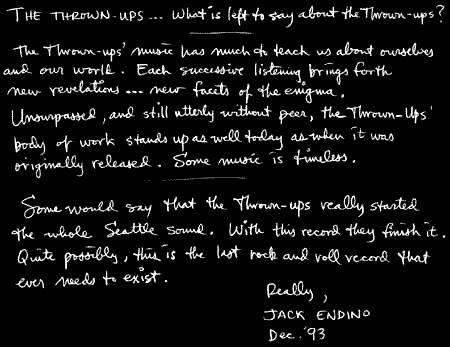 THE THROWN-UPS ... What is left to say about the Thrown-ups?
The Thrown-ups' music has much to teach us about ourselves
and our world. Each successive listening brings forth
new revelations ... new facets of the enigma.
Unsurpassed, and still utterly without peer, the Thrown-Ups'
body of work stands up as well today as when it was
originally released. Some music is timeless.
Some would say that the Thrown-ups really started
the whole Seattle sound. With this record they finish it.
Quite possibly, this is the last rock and roll record that
ever needs to exist.
Really,
JACK ENDINO
Dec. '93